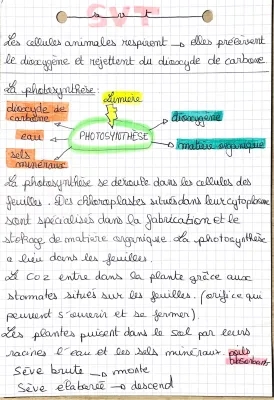 SVT
s v t
Les cellules animales respirent → elles prélèvent
le dioxygène et rejettent du dioxyde de carbone
La photosynthèse :
Lumière
dioxyde de
carbone
dioxygène
eau
PHOTOSYNTHÈSE
matière organique
sels
minéraux
La photosynthèse se déroule dans les cellules des
feuilles. Des chloroplastes situés dans leur cytoplasme
sont spécialisés dans la fabrication et le
stokage de matière organique. La photosynthèse
a lieu dans les feuilles.
Le CO2 entre dans la plante grâce aux
stomates situés sur les feuilles. (orifice qui
peuvent s'ouvrir et se fermer).
Les plantes puisent dans le sol par leurs
racines l'eau et les sels minéraux. poils
absorbants
Sève brute → monte
Sève élaborée → descend